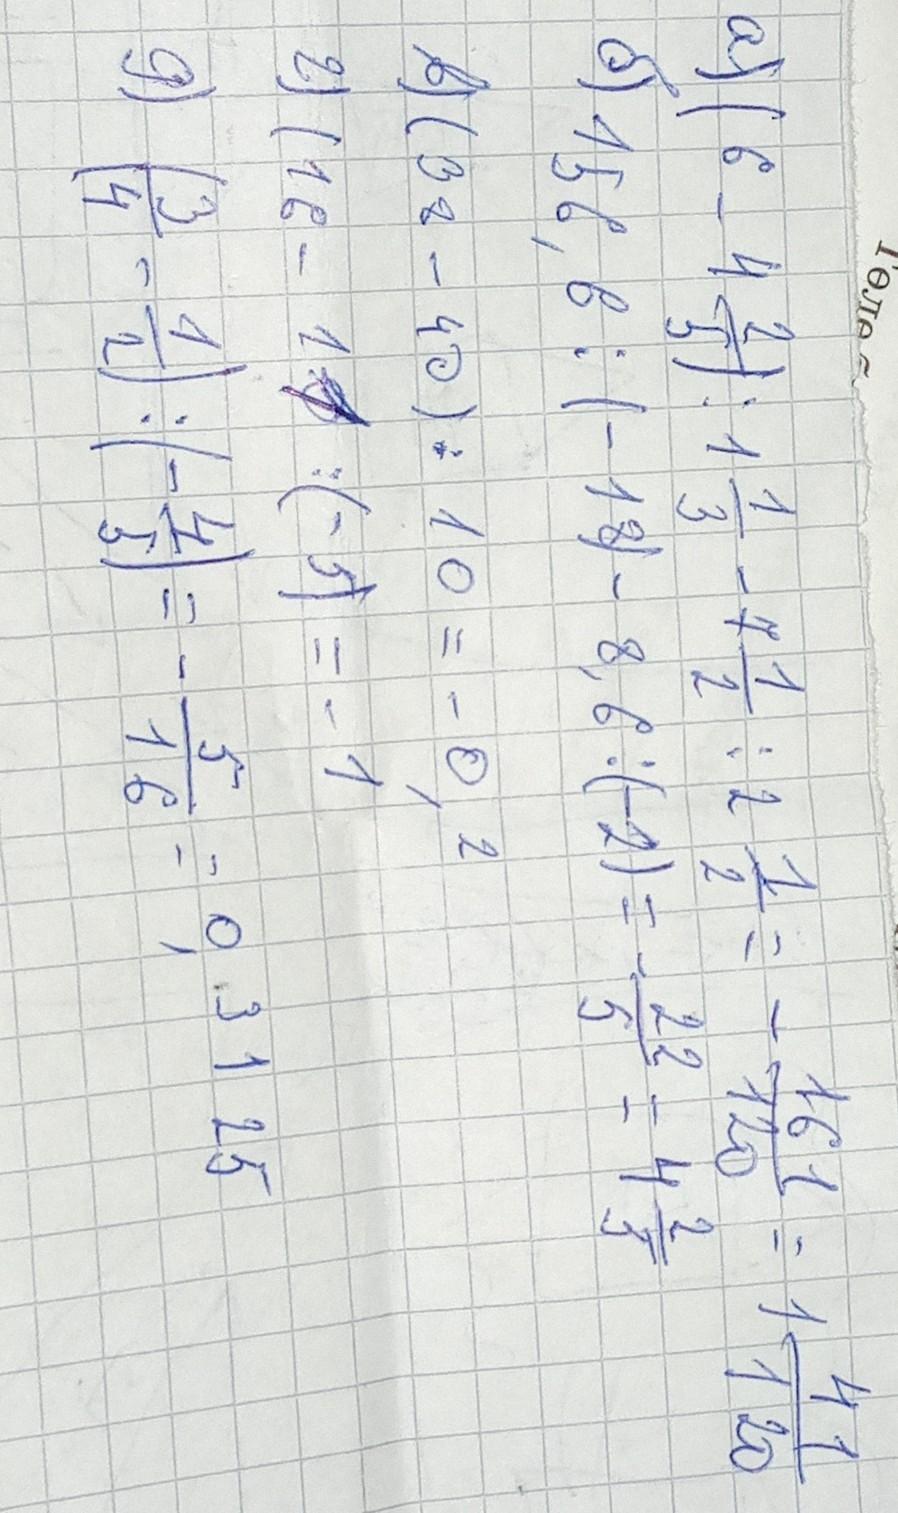 а) (6 - 4 2/5) : 1 1/3 - 1/2 : 2 1/2 = - 161/120 = 1 41/120
б) 156,6 : (-18) - 8,6 : (-2) = - 22/5 = 4 2/5
в) (38 - 40) : 10 = - 0,2
г) (16 - 1 : (-5) = - 1
д) (3/4 - 1/2) : (- 4/5) = - 5/16 = - 0,3125